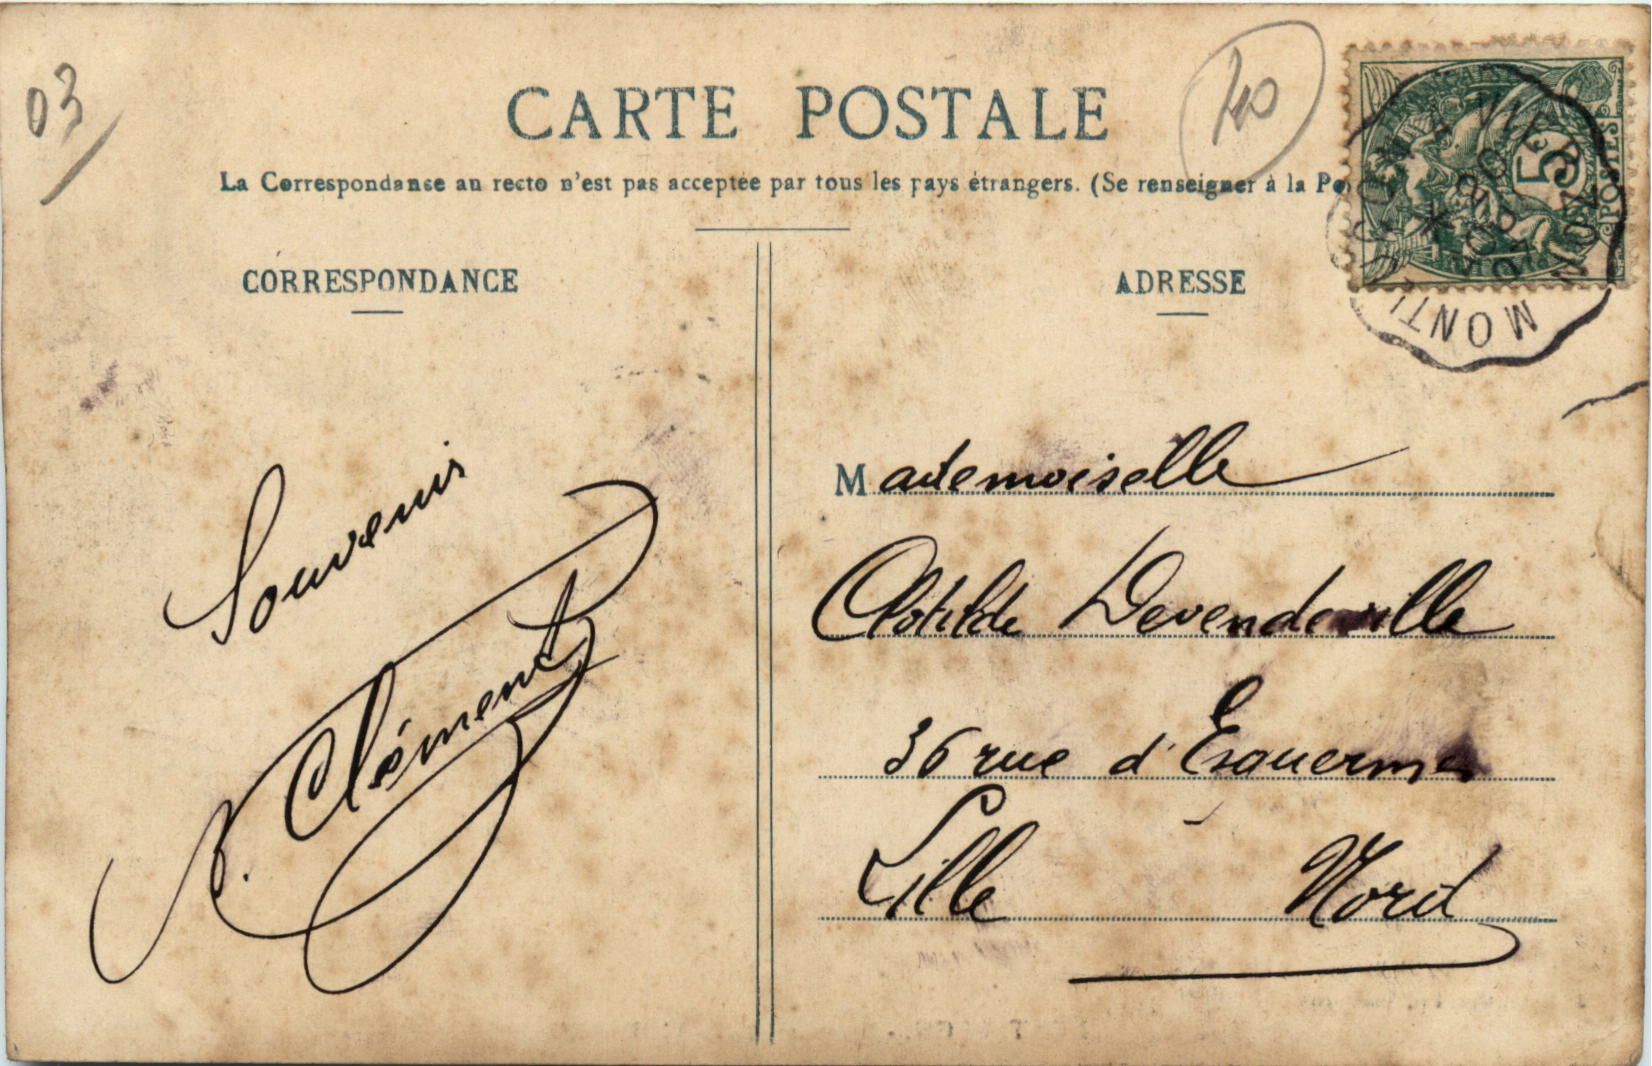 03
CARTE POSTALE
La Correspondanse au recto n'est pas acceptée par tous les pays étrangers. (Se renseigner à la Po
CORRESPONDANCE
ADRESSE
5
POSTES
Souvenir
Clément
Mademoiselle
Clotilde Devendeville
36 rue d'Esquermes
Lille Nord